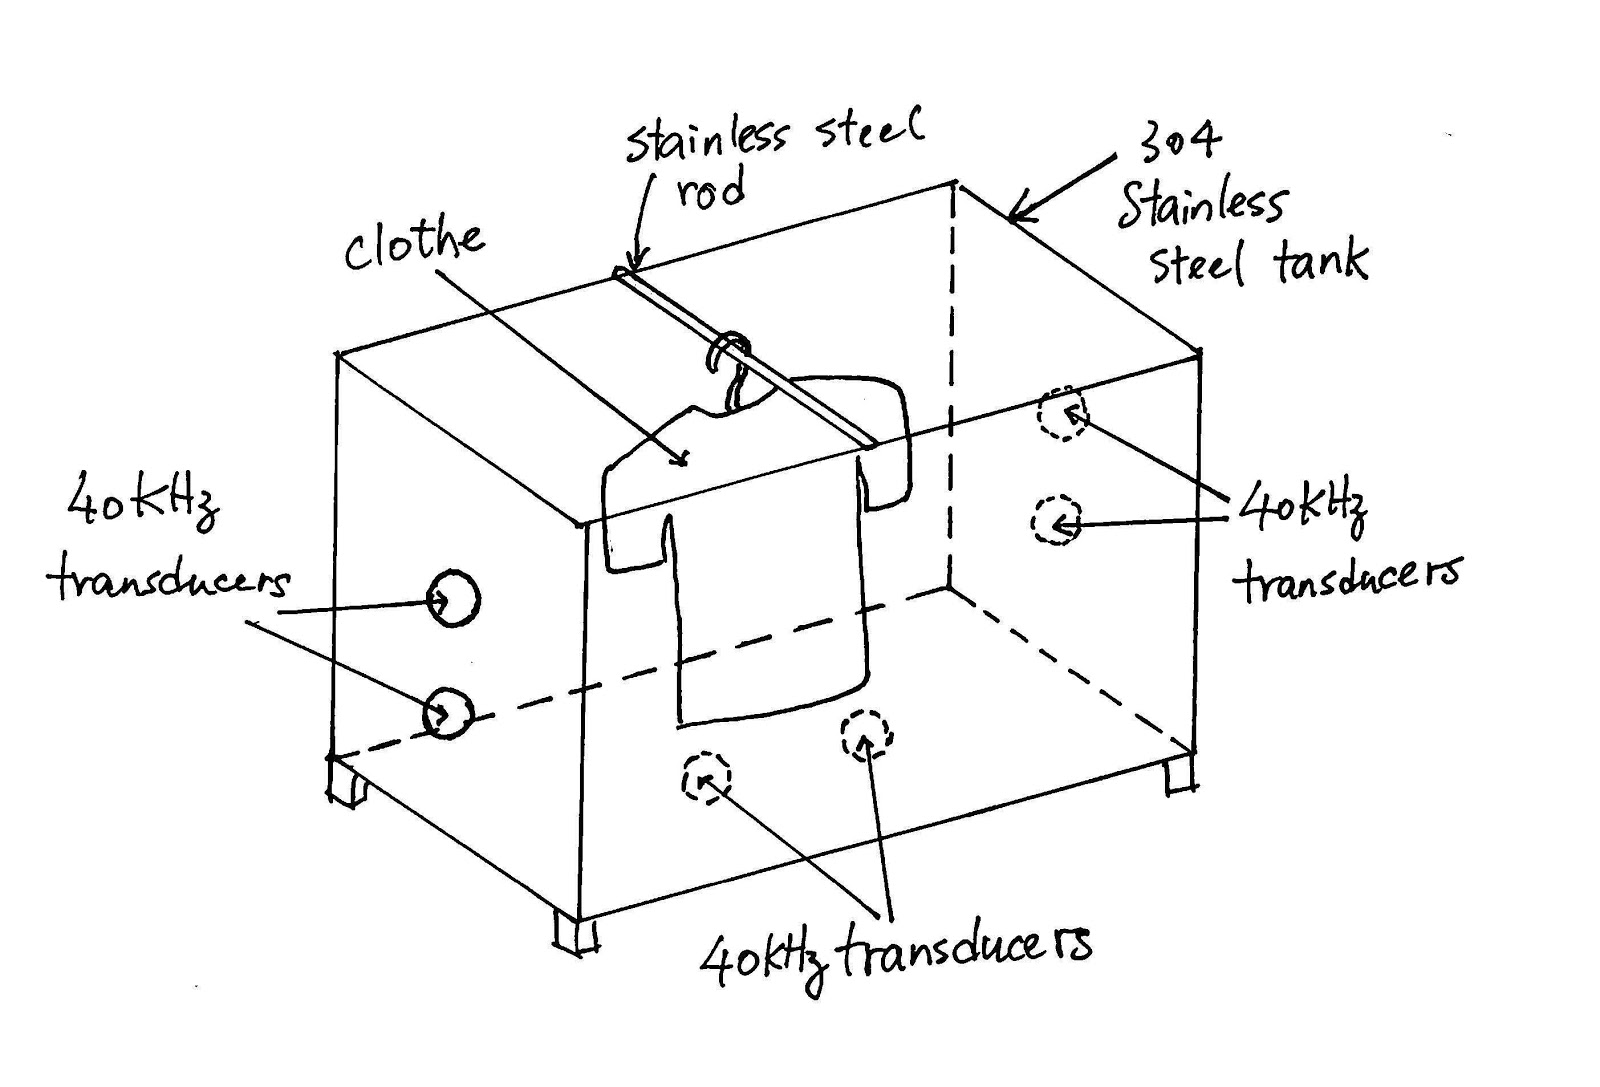 stainless steel
rod
304
Stainless
steel tank
clothe
40KHz
transducers
40KHz
transducers
40KHz transducers